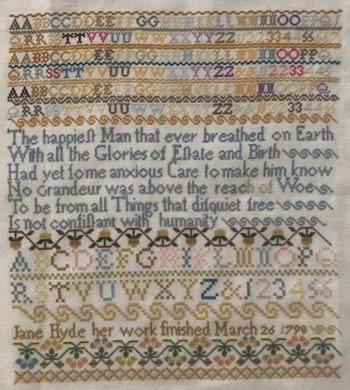 AABBCCDDEE GG H
QRR TTVVUUWWXXYYZZ 2233 4 55
AABBCCDDEE GG H OOPPQ
QRRSSTT UUWWXXYYZZ 2233 55
AABBCCDDEE GG H
QRR UU WW ZZ 33
The happiest Man that ever breathed on Earth
With all the Glories of Estate and Birth
Had yet some anxious Care to make him know
No Grandeur was above the reach of Woe
To be from all Things that disquiet free
Is not consistant with humanity
ABCDEFGHIKLMNOPQ
RSTUVWXYZ&123455
Jane Hyde her work finished March 26 1790